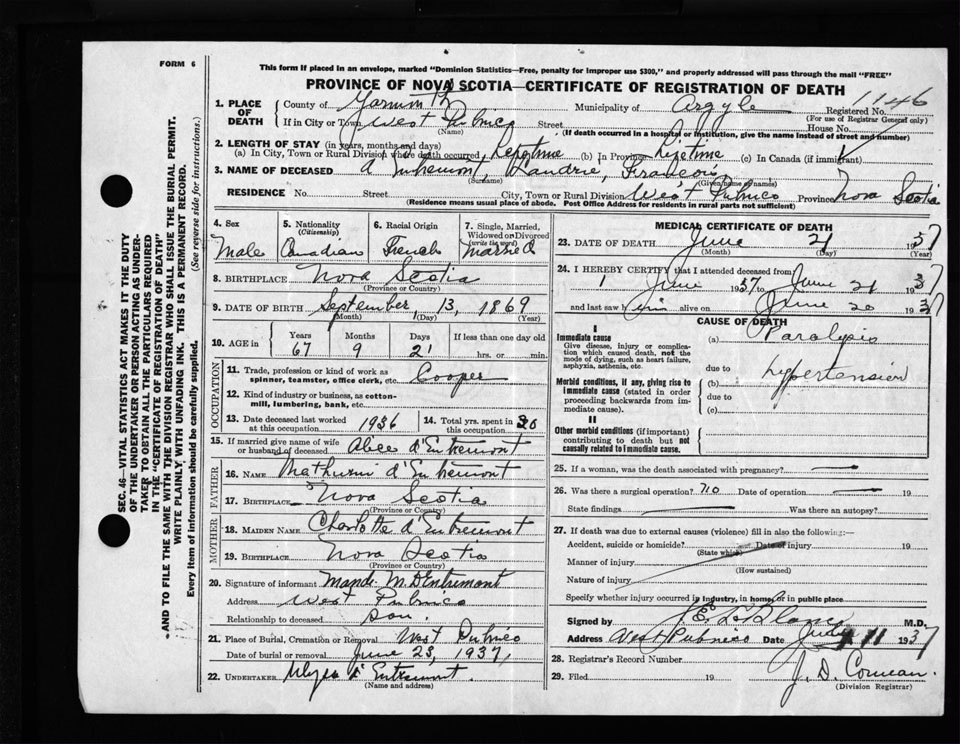 FORM 6
This form if placed in an envelope, marked "Dominion Statistics—Free, penalty for improper use $300," and properly addressed will pass through the mail "FREE"
PROVINCE OF NOVA SCOTIA—CERTIFICATE OF REGISTRATION OF DEATH
1146
1. PLACE OF DEATH County of Yarmouth Municipality of Argyle Registered No.
(For use of Registrar General only)
If in City or Town West Pubnico Street House No.
(Name) (If death occurred in a hospital or institution, give the name instead of street and number)
2. LENGTH OF STAY (in years, months and days)
(a) In City, Town or Rural Division where death occurred, Lifetime (b) In Province Lifetime (c) In Canada (if immigrant)
3. NAME OF DECEASED d'Entremont, Landrie, Francois
(Surname) (Given name or names)
RESIDENCE No. Street City, Town or Rural Division West Pubnico Province Nova Scotia
(Residence means usual place of abode. Post Office Address for residents in rural parts not sufficient)
4. Sex 5. Nationality (Citizenship) 6. Racial Origin 7. Single, Married, Widowed or Divorced (write the word)
Male Canadian French Married
8. BIRTHPLACE Nova Scotia
(Province or Country)
9. DATE OF BIRTH September 13, 1869
(Month) (Day) (Year)
10. AGE in Years Months Days If less than one day old
67 9 21 hrs. or min.
OCCUPATION
11. Trade, profession or kind of work as spinner, teamster, office clerk, etc. Cooper
12. Kind of industry or business, as cotton-mill, lumbering, bank, etc.
13. Date deceased last worked at this occupation 1936 14. Total yrs. spent in this occupation 30
15. If married give name of wife or husband of deceased Alice d'Entremont
FATHER
16. NAME Mathurin d'Entremont
17. BIRTHPLACE Nova Scotia
(Province or Country)
MOTHER
18. MAIDEN NAME Charlotte d'Entremont
19. BIRTHPLACE Nova Scotia
(Province or Country)
20. Signature of informant Mande M. D'Entremont
Address West Pubnico
Relationship to deceased Son.
21. Place of Burial, Cremation or Removal West Pubnico
Date of burial or removal June 23, 1937
22. UNDERTAKER d'Entremont.
(Name and address)
MEDICAL CERTIFICATE OF DEATH
23. DATE OF DEATH June 21 1937
(Month) (Day) (Year)
24. I HEREBY CERTIFY that I attended deceased from
1 June 1937 to June 21 1937
and last saw him alive on June 20 1937
CAUSE OF DEATH
I
Immediate cause
Give disease, injury or complication which caused death, not the mode of dying, such as heart failure, asphyxia, asthenia, etc.
(a) Paralysis
due to hypertension
Morbid conditions, if any, giving rise to immediate cause (stated in order proceeding backwards from immediate cause).
(b)
due to
(c)
II
Other morbid conditions (if important) contributing to death but not causally related to immediate cause.
25. If a woman, was the death associated with pregnancy?
26. Was there a surgical operation? no Date of operation 19
State findings Was there an autopsy?
27. If death was due to external causes (violence) fill in also the following:—
Accident, suicide or homicide? Date of injury 19
(State which)
Manner of injury
(How sustained)
Nature of injury
Specify whether injury occurred in industry, in home, or in public place
Signed by M.D.
Address West Pubnico Date July 11 1937
28. Registrar's Record Number
29. Filed 19 J. D. Comeau.
(Division Registrar)
SEC. 46—VITAL STATISTICS ACT MAKES IT THE DUTY
OF THE UNDERTAKER OR PERSON ACTING AS UNDER-
TAKER TO OBTAIN ALL THE PARTICULARS REQUIRED
IN THE "CERTIFICATE OF REGISTRATION OF DEATH"
AND TO FILE THE SAME WITH THE DIVISION REGISTRAR WHO SHALL ISSUE THE BURIAL PERMIT.
WRITE PLAINLY WITH UNFADING INK. THIS IS A PERMANENT RECORD.
Every item of information should be carefully supplied. (See reverse side for instructions.)